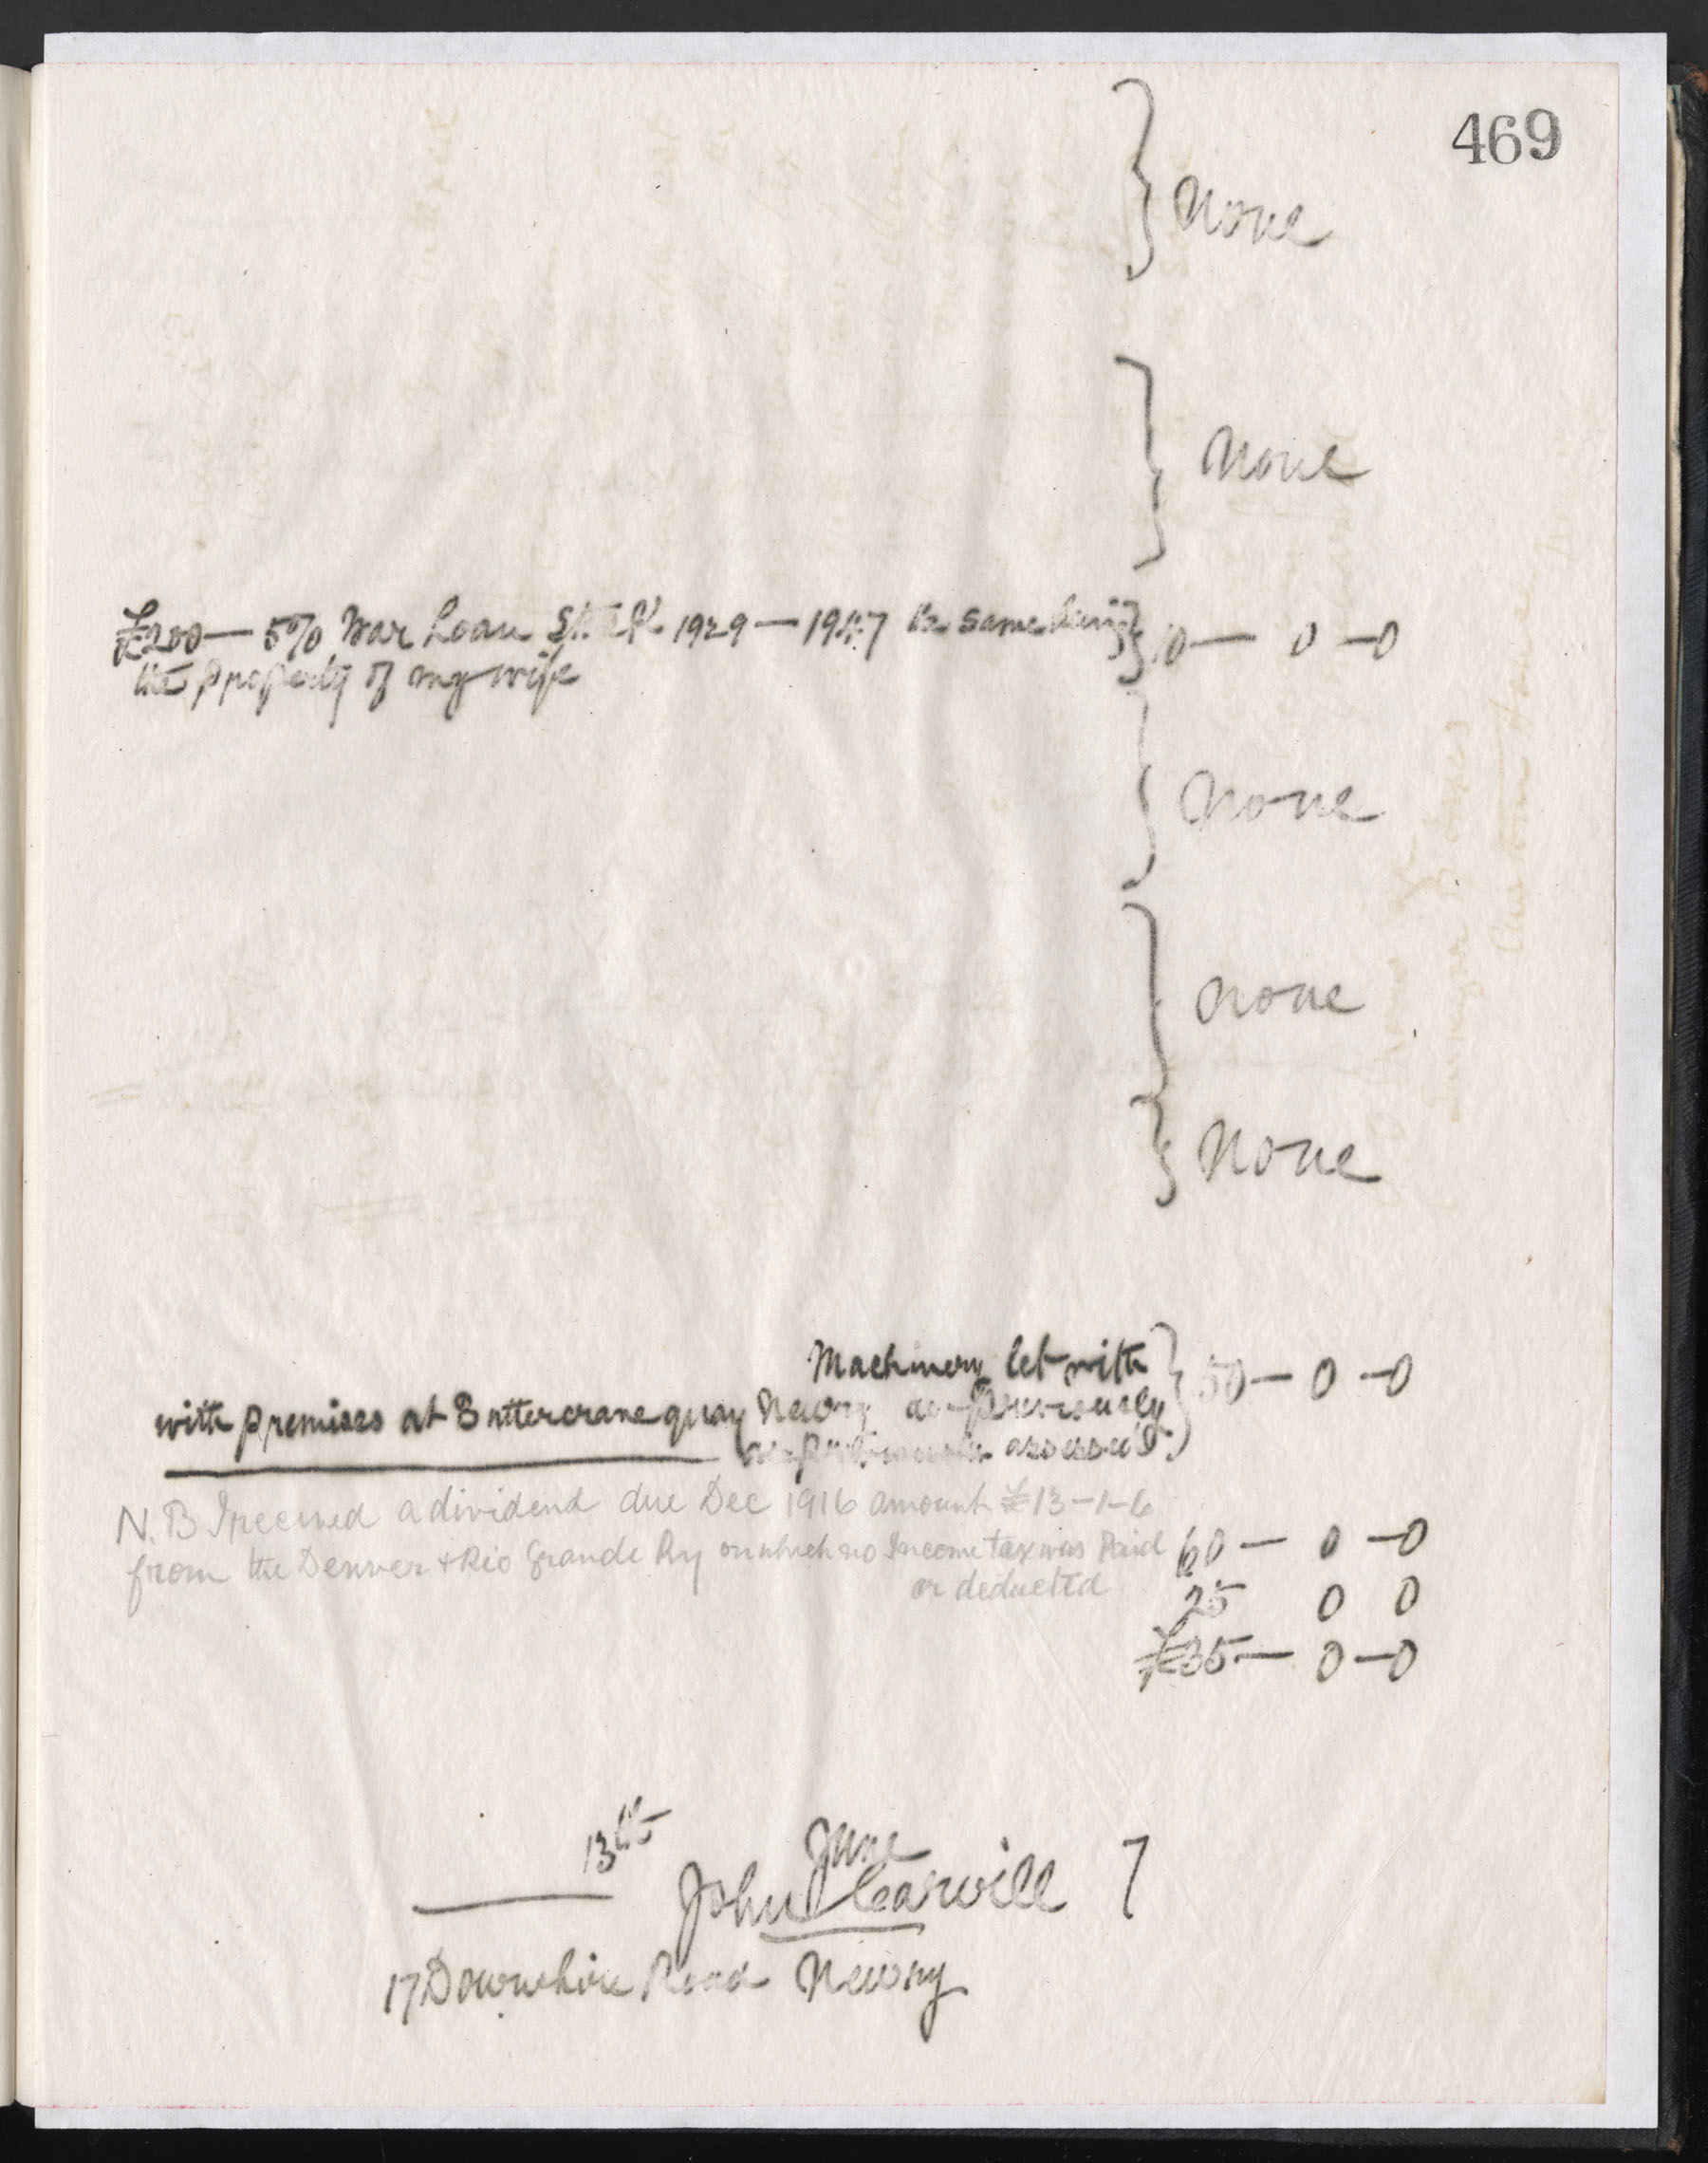 469
} None
} None
£200 — 5% War Loan Stock 1929 — 1947 the same being } 10 — 0 — 0
the property of my wife
} None
} None
} None
Machinery let with } 50 — 0 — 0
with premises at Buttercrane quay Newry as previously
as previously assessed
N.B I received a dividend due Dec 1916 amount £13-1-6
from the Denver + Rio Grande Ry on which no Income tax was Paid
or deducted
60 — 0 — 0
25 0 0
£35 — 0 — 0
13th June 7
John Carvill
17 Downshire Road Newry